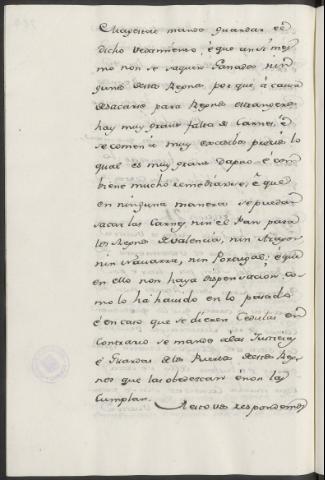 Magestad mande guardar el
dicho vedamiento, é que ansi mes
mo non se saquen Ganados nin
gunos destos Reynos, por que á causa
de sacarse para Reynos estrangeros
hay muy grand falta de Carnes, é
se comen á muy excesibos precios lo
qual es muy grand dapno é con
biene mucho remediarse, é que
en ninguna manera se puedan
sacar las Carnes, nin el Pan para
los Reynos de Valencia, nin Aragon
nin Navarra, nin Portugal; é que
en ello non haya dispensacion co
mo lo há havido en lo pasado
é en caso que se dieren Cedulas en
Contrario se mande á las Justicias
é Guardas de los Puertos destos Rey
nos que las obedescan é non las
Cumplan.
A esto vos respondemos